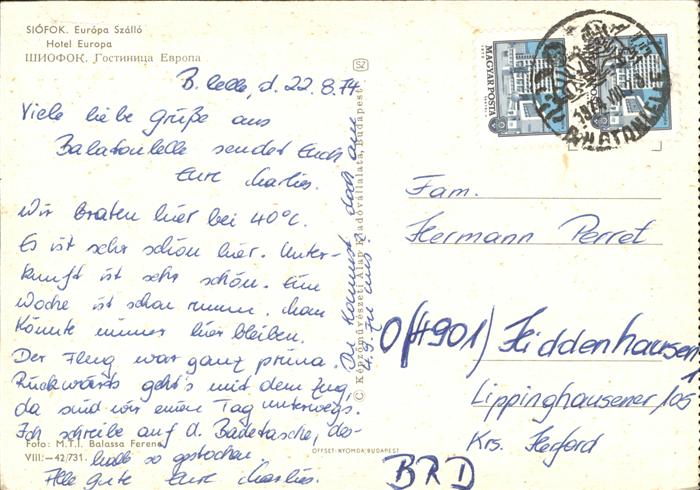 SIÓFOK. Európa Szálló
Hotel Europa
ШИОФОК. Гостиница Европа
B.lelle, d. 22.8.74
Viele liebe grüße aus
Balatonlelle sendet Euch
Eure Marlies.
Wir braten hier bei 40°C.
Es ist sehr schön hier. Unter-
kunft ist sehr schön. Eine
Woche ist schon rumm. Man
könnte immer hier bleiben.
Der Flug war ganz prima.
Rückwärts geht's mit dem Zug,
da sind wir einen Tag unterwegs.
Ich schreibe auf d. Badetasche, des-
halb so gestochen.
Alle gute Eure Marlies.
Du kommst doch am
4.9. zu uns?
Foto: M.T.I. Balassa Ferenc
VIII.—42/731.
SZ
© Képzőművészeti Alap Kiadóvállalata, Budapest
OFFSET-NYOMDA BUDAPEST
MAGYAR POSTA
Fam.
Hermann Perret
(4901) Hiddenhausen
1
Lippinghausener/105
Krs. Herford
BRD